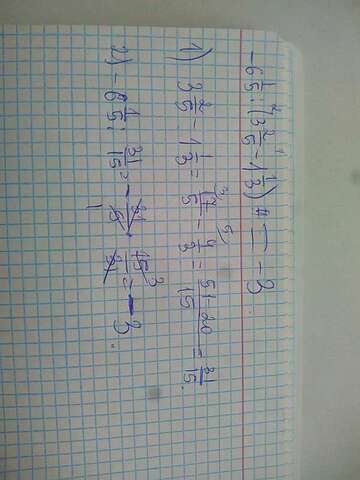 -6 1/5 : (3 2/5 - 1 1/3) = -3
1) 3 2/5 - 1 1/3 = 17/5 - 4/3 = 51-20/15 = 31/15.
2) -6 1/5 : 31/15 = -31/5 · 15/31 = -3.